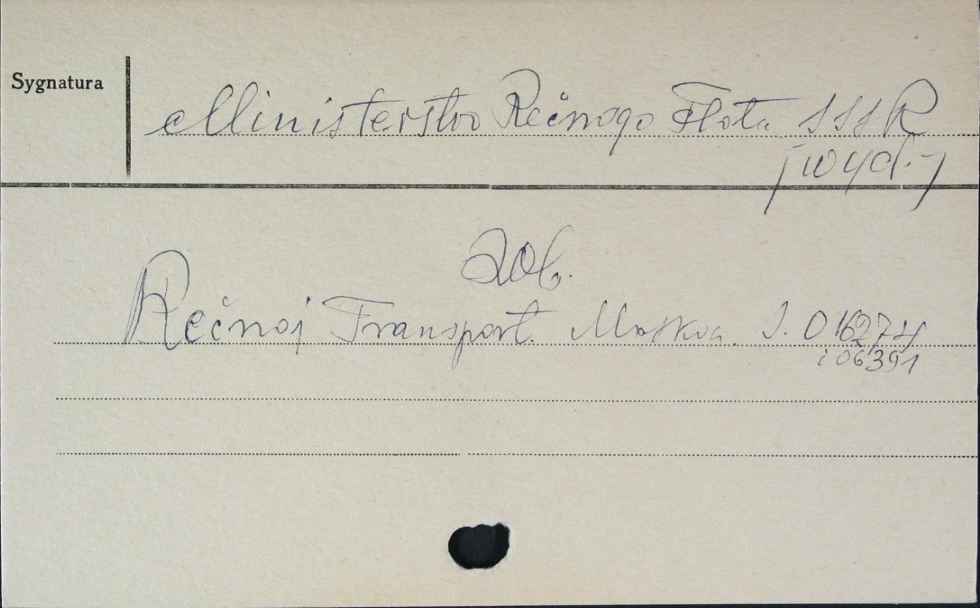 Sygnatura
Ministerstvo Rečnogo Flota SSSR
[wyd.]
zob.
Rečnoj Transport. Moskva. I. 016274
i 06391